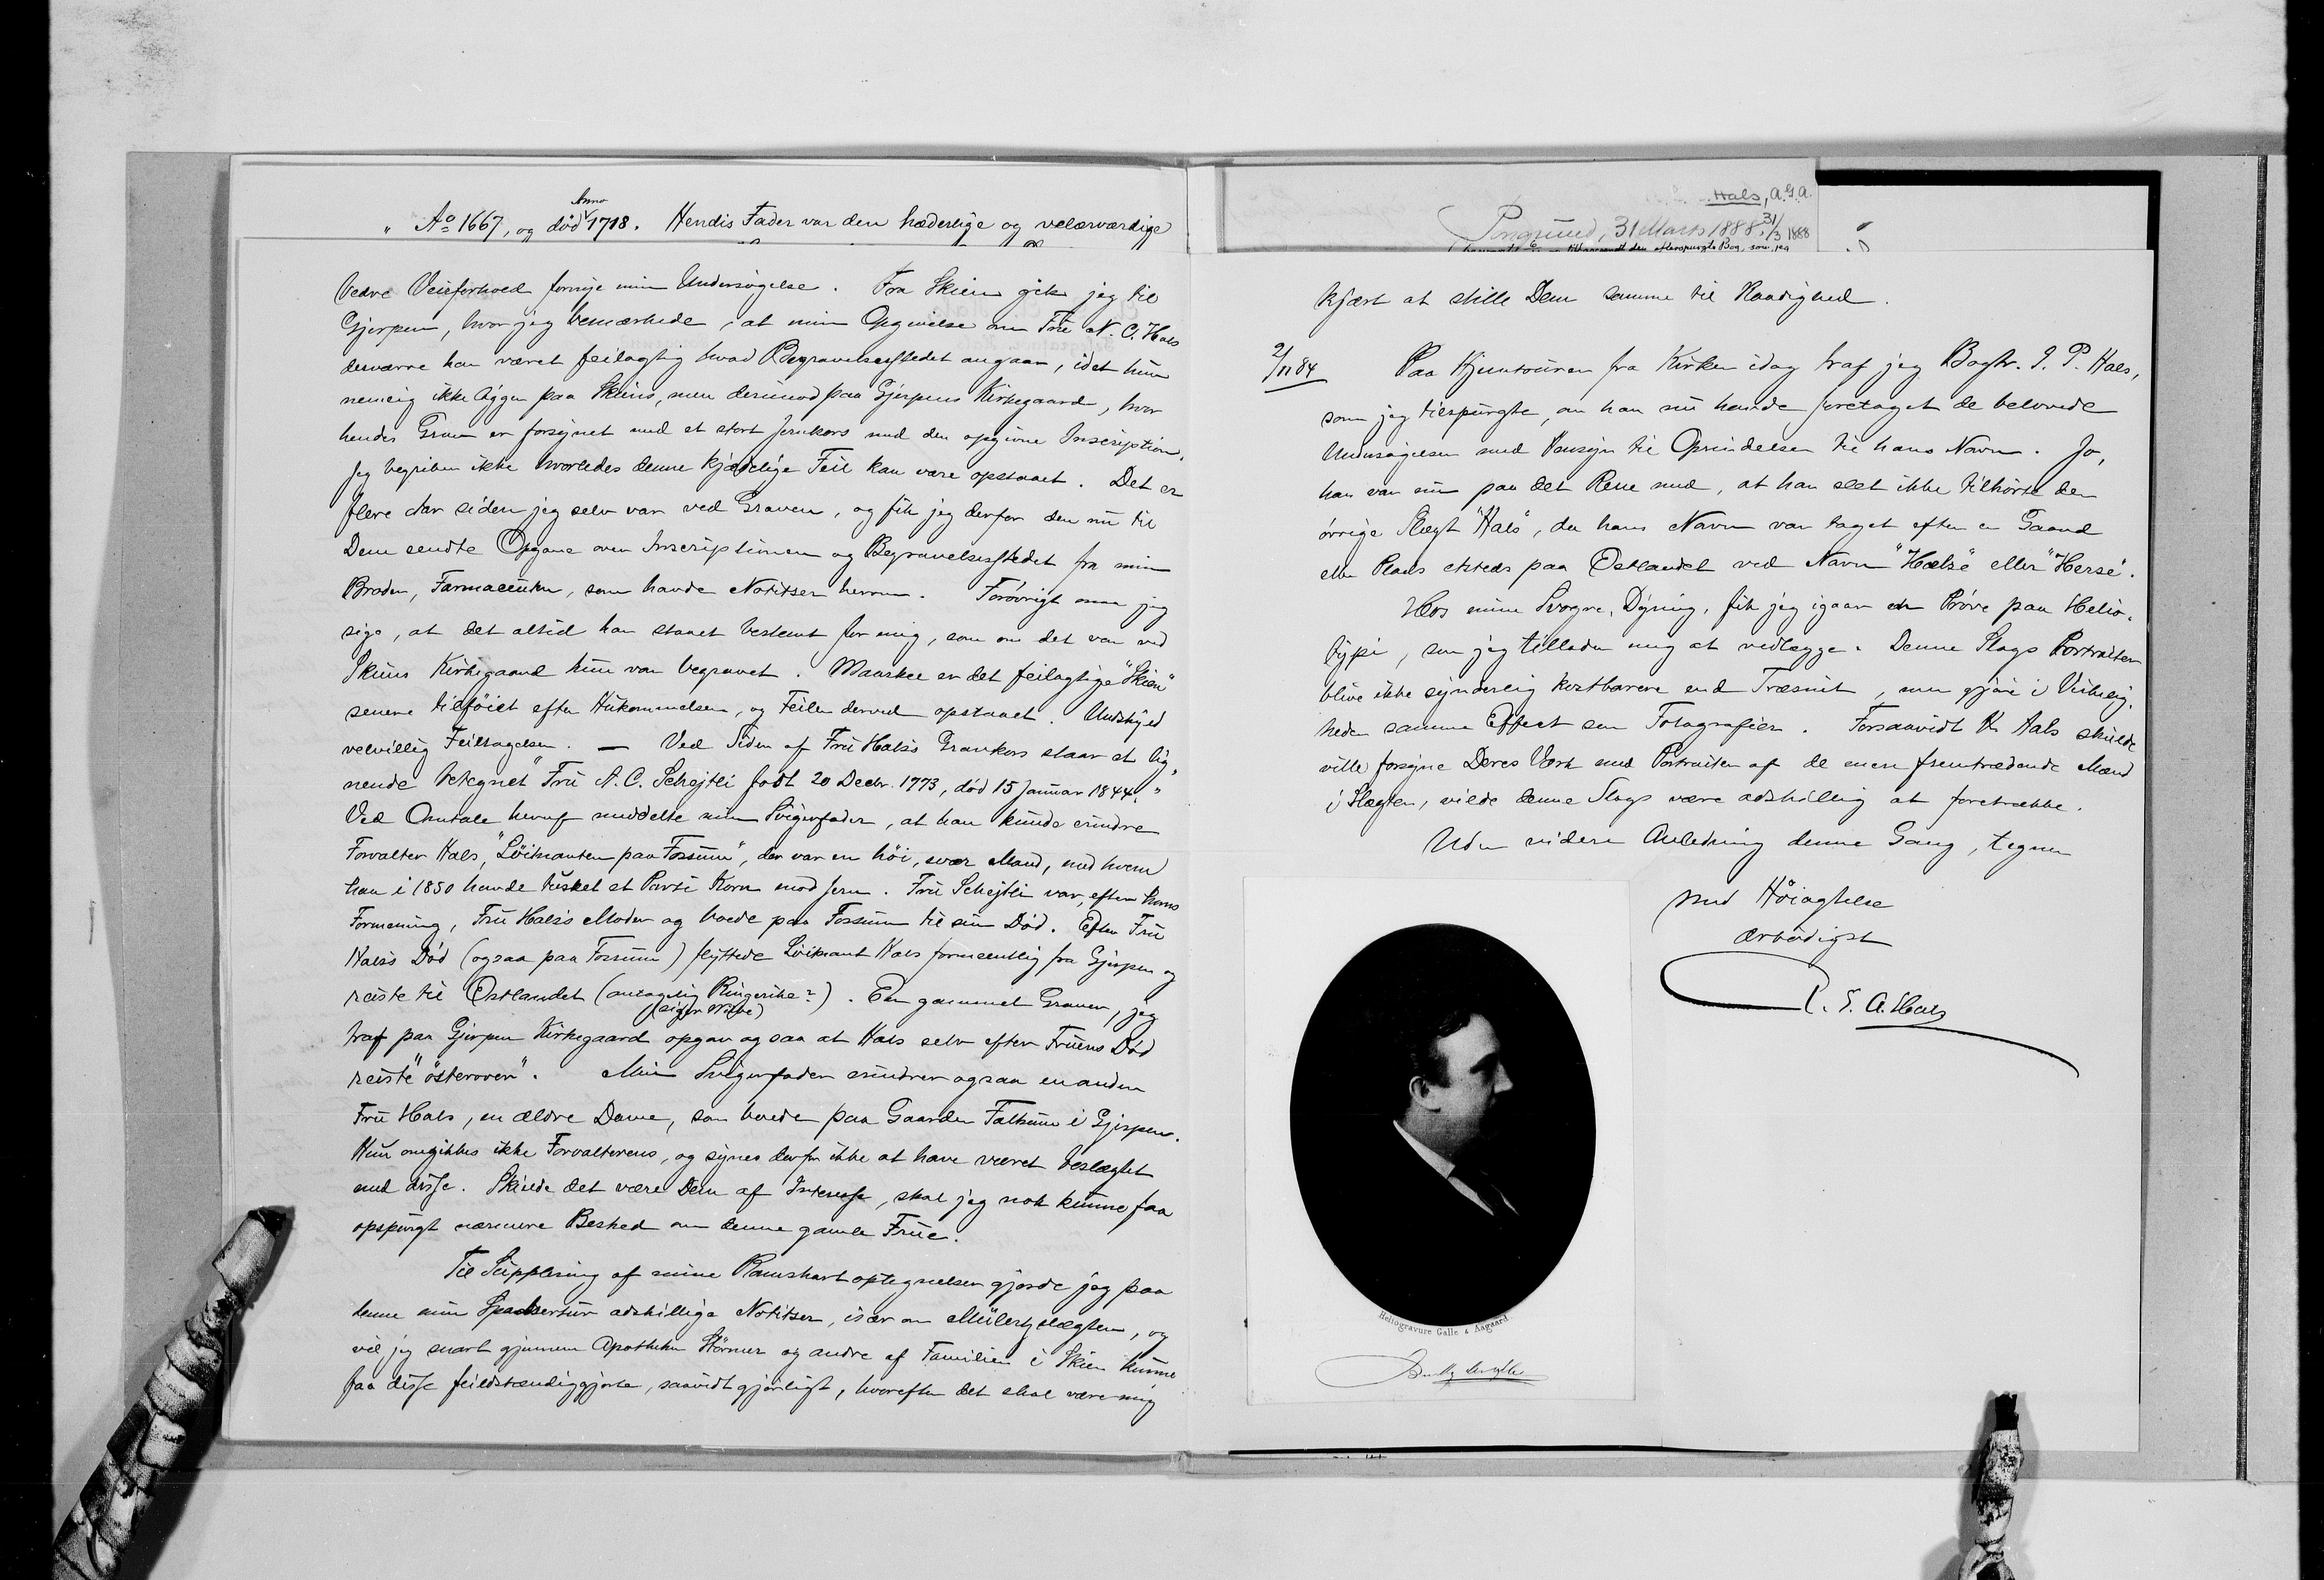 Anno
" Aº 1667, og död 1718. Hendis Fader var den hæderlige og velærværdige
bedre Veiforhold fornye min Undersøgelse. Fra Skien gik jeg til
Gjerpen, hvor jeg bemærkede, at min Opgivelse om Frü N. C. Hals
desværre har været feilagtig hvad Begravelsesstedet angaar, idet hün
nemlig ikke ligger paa Skiens, men derimod paa Gjerpens Kirkegaard, hvor
hendes Grav er forsynet med et stort Jernkors med den opgivne Inscription.
Jeg begriber ikke hvorledes denne kjedelige Feil kan være opstaaet. Det er
flere Aar siden jeg selv var ved Graven, og fik jeg derfor den nü til
Dem sendte Opgave over Inscriptionen og Begravelsesstedet fra min
Broder, Farmaceüten, som havde Notitser herom. Forövrigt maa jeg
sige, at det altid har staaet bestemt for mig, som om det var ved
Skiens Kirkegaard hün var begravet. Maaskee er det feilagtige "Skien"
senere tilföiet efter Hükommelsen, og Feilen derved opstaaet. Undskyld
velvillig Feiltagelsen. — Ved Siden af Frü Hals's Gravkors staar et lig-
nende betegnet "Frü A. C. Schejtli født 20 Decbr. 1773, död 15 Januar 1844."
Ved Omtale heraf meddelte min Svigerfader, at han künde erindre
Forvalter Hals, "Löitnanten paa Fossüm", der var en höi, svær Mand, med hvem
han i 1850 havde tüsket et Parti Korn mod Jern. Frü Schejtli var, efter hans
Formening, Frü Hals's Moder og boede paa Fossum til sin Död. Efter Frü
Hals's Död (ogsaa paa Fossüm) flyttede Löitnant Hals formentlig fra Gjerpen og
reiste til Østlandet (antagelig Ringerike?). En gammel Graver, jeg
traf paa Gjerpen Kirkegaard opgav ogsaa at Hals selv efter Früens Död
reiste "österover". Min Svigerfader erindrer ogsaa en anden
Frü Hals, en ældre Dame, som boede paa Gaarden Falküm i Gjerpen.
Hün omgikkes ikke Forvalterens, og synes derfor ikke at have været beslægtet
med disse. Skülde det være Dem af Interesse, skal jeg nok künne faa
opspürgt nærmere Besked om denne gamle Früe.
Til Süpplering af mine Ramshartoptegnelser gjorde jeg paa
denne min Spadsertür adskillige Notitser, især om Müllertzslægten, og
vil jeg snart gjennem Apotheker Störmer og andre af Familien i Skien künne
faa disse füldstændiggjorte, saavidt gjörligt, hvorefter det skal være mig
Hals, A.G.A.
Porsgrund, 31 Marts 1888. 31/3 1888
kjært at stille Dem samme til Raadighed.
2/11 84
Paa Hjemtouren fra Kirken idag traf jeg Bogtr. J. P. Hals,
som jeg tilspürgte, om han nü havde foretaget de belovede
Undersøgelser med Hensyn til Oprindelsen til hans Navn. Jo,
han var nü paa det Rene med, at han slet ikke tilhörte den
övrige Slægt "Hals", da hans Navn var taget efter en Gaard
eller Plads etsteds paa Østlandet ved Navn "Hælse" eller "Herse".
Hos min Svoger, Dyring, fik jeg igaar en Pröve paa Helio-
typi, som jeg tillader mig at vedlægge. Denne Slags Portraiter
blive ikke synderlig kostbarere end Træsnit, men gjöre i Virkelig-
heden samme Effect som Fotografier. Forsaavidt Hr Hals skülde
ville forsyne Deres Værk med Portraiter af de mere fremtrædende Mænd
i Slægten, vilde denne Slags være adskillig at foretrække.
Uden videre Anledning denne Gang, tegner
med Höiagtelse
ærbödigst
A. Hals
Heliogravure Galle & Aagaard